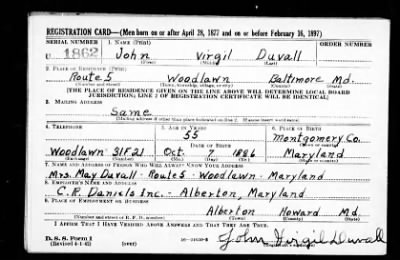 REGISTRATION CARD—(Men born on or after April 28, 1877 and on or before February 16, 1897)
SERIAL NUMBER 1. NAME (Print)
U 1862 John Virgil Duvall
(First) (Middle) (Last)
2. PLACE OF RESIDENCE (Print)
Route 5 Woodlawn Baltimore Md.
(Number and street) (Town, township, village, or city) (County) (State)
[THE PLACE OF RESIDENCE GIVEN ON THE LINE ABOVE WILL DETERMINE LOCAL BOARD
JURISDICTION; LINE 2 OF REGISTRATION CERTIFICATE WILL BE IDENTICAL]
3. MAILING ADDRESS
Same
[Mailing address if other than place indicated on line 2. If same insert word same]
4. TELEPHONE 5. AGE IN YEARS 6. PLACE OF BIRTH
55 Montgomery Co.
DATE OF BIRTH (Town or county)
Woodlawn 31F21 Oct. 7 1886 Maryland
(Exchange) (Number) (Mo.) (Day) (Yr.) (State or country)
7. NAME AND ADDRESS OF PERSON WHO WILL ALWAYS KNOW YOUR ADDRESS
Mrs. May Duvall - Route 5 - Woodlawn - Maryland
8. EMPLOYER'S NAME AND ADDRESS
C.R. Daniels Inc. - Alberton, Maryland
9. PLACE OF EMPLOYMENT OR BUSINESS
Alberton Howard Md.
(Number and street or R. F. D. number) (Town) (County) (State)
I AFFIRM THAT I HAVE VERIFIED ABOVE ANSWERS AND THAT THEY ARE TRUE.
D. S. S. Form 1
(Revised 4-1-42) (over) John Virgil Duvall